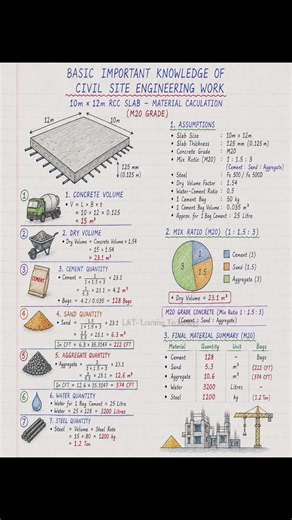 BASIC IMPORTANT KNOWLEDGE OF
CIVIL SITE ENGINEERING WORK
10m × 12m RCC SLAB - MATERIAL CACULATION
(M20 GRADE)
12m
10m
125 mm
(0.125 m)
1. ASSUMPTIONS
• Slab Size : 10m × 12m
• Slab Thickness : 125 mm (0.125 m)
• Concrete Grade : M20
• Mix Ratio (M20) : 1 : 1.5 : 3
(Cement : Sand : Aggregate)
• Steel : Fe 500 / Fe 500D
• Dry Volume Factor : 1.54
• Water-Cement Ratio : 0.5
• 1 Cement Bag : 50 kg
• 1 Cement Bag Volume : 0.035 m³
• Approx. for 1 Bag Cement : 25 Litre
① 1. CONCRETE VOLUME
• V = L × B × t
= 10 × 12 × 0.125
= 15 m³
② 2. DRY VOLUME
• Dry Volume = Concrete Volume × 1.54
= 15 × 1.54
= 23.1 m³
③ 3. CEMENT QUANTITY
CEMENT
• Cement = 1/(1 + 1.5 + 3) × 23.1
= 1/5.5 × 23.1 = 4.2 m³
• Bags = 4.2 / 0.035 = 128 BAGS
④ 4. SAND QUANTITY
• Sand = 1.5/(1 + 1.5 + 3) × 23.1
= 1.5/5.5 × 23.1 = 6.3 m³
In CFT = 6.3 × 35.3147 = 222 CFT
⑤ 5. AGGREGATE QUANTITY
• Aggregate = 3/(1 + 1.5 + 3) × 23.1
= 3/5.5 × 23.1 = 12.5 m³
In CFT = 12.6 × 35.3147 = 374 CFT
⑥ 6. WATER QUANTITY
• Water for 1 Bag Cement = 25 Litre
• Water = 25 × 128 = 3200 Litres
⑦ 7. STEEL QUANTITY
• Steel = Volume × Steel Rate
= 15 × 80 = 1200 kg
= 1.2 Ton
2. MIX RATIO (M20) (1 : 1.5 : 3)
1
1.5
3
Cement (1)
Sand (1.5)
Aggregate (3)
• Dry Volume = 23.1 m³
L&T- Learning
M20 GRADE CONCRETE (Mix Ratio 1 : 1.5 : 3)
(Cement : Sand : Aggregate)
3. FINAL MATERIAL SUMMARY (M20)
Material Quantity Unit Bags
• Cement 128 - Bags
• Sand 5.3 m³ (222 CFT)
• Aggregate 10.6 m³ (374 CFT)
• Water 3200 Litres -
• Steel 1200 kg (1.2 Ton)